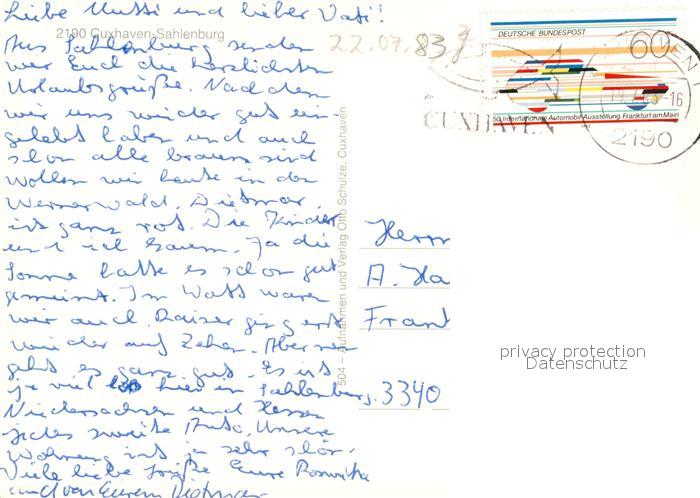 Liebe Mutti und lieber Vati!
2190 Cuxhaven-Sahlenburg
Aus Sahlenburg senden
wir Euch die herzlichsten
Urlaubsgrüße. Nachdem
wir uns wieder gut ein-
gelebt haben und auch
schon alle braun sind
wollen wir heute in den
Wernerwald. Dietmar
ist ganz rot. Die Kinder
und ich braun. Ja die
Sonne hatte es schon gut
gemeint. Im Watt waren
wir auch. ging erst
wieder auf Zehen. Aber nun
geht es ganz gut. Es ist
ja viel los hier in Sahlenburg.
Niedersachsen und Hessen
jedes zweite Auto. Unsere
Wohnung ist ja sehr schön.
Viele liebe Grüße Eure Roswitha
und von Eurem Dietmar
22.07.83
DEUTSCHE BUNDESPOST
60
50. Internationale Automobil-Ausstellung Frankfurt am Main
CUXHAVEN
-16
2190
504 – Aufnahmen und Verlag Otto Schulze, Cuxhaven
Herrn
A. Ha
Frank
3340
privacy protection
Datenschutz